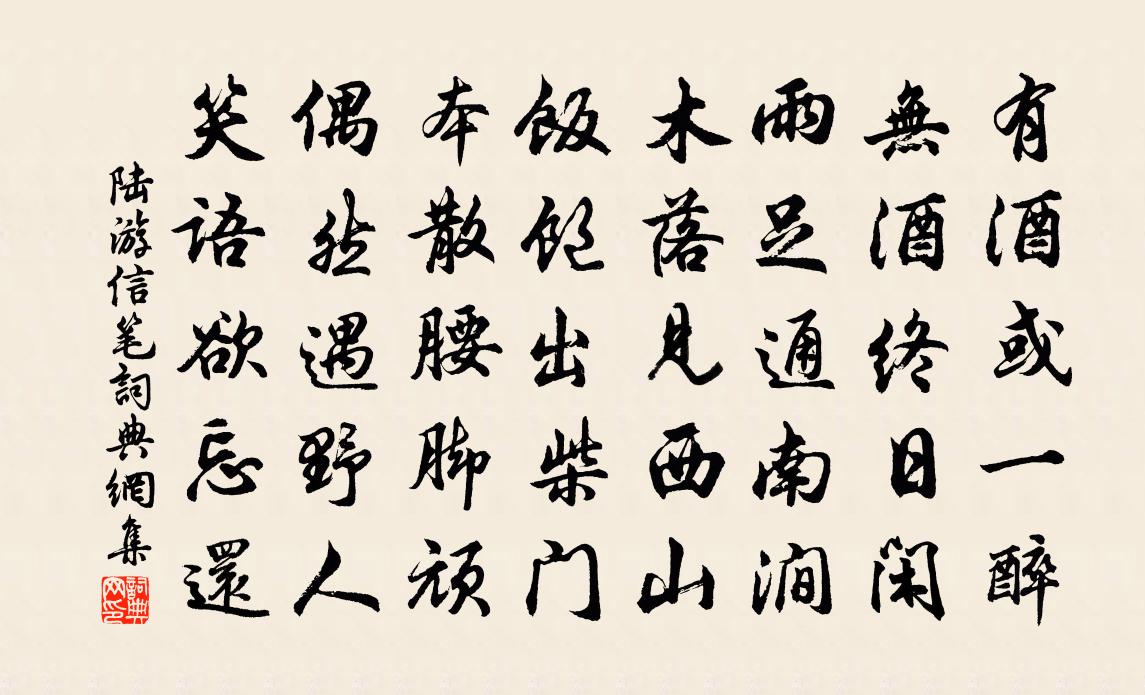 有酒或一醉
無酒終日闲
雨足通南澗
木落見西山
飯飽出柴门
本散腰脚頑
偶然遇野人
笑語欲忘還
陆游信笔詞典網集
詞典网印